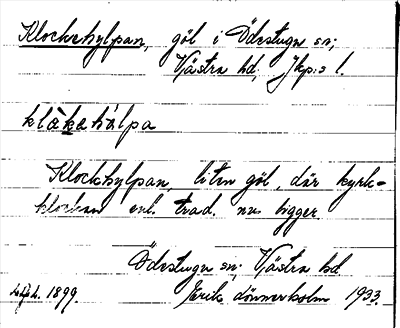 Klockehylpan, göl i Ödestugu sn;
Västra hd, Jkp:s l.
klåkahálpa
Klockhylpan, liten göl, där kyrk=
klockan enl. trad. nu ligger.
Ödestugu sn; Västra hd
1899. Erik 1933.